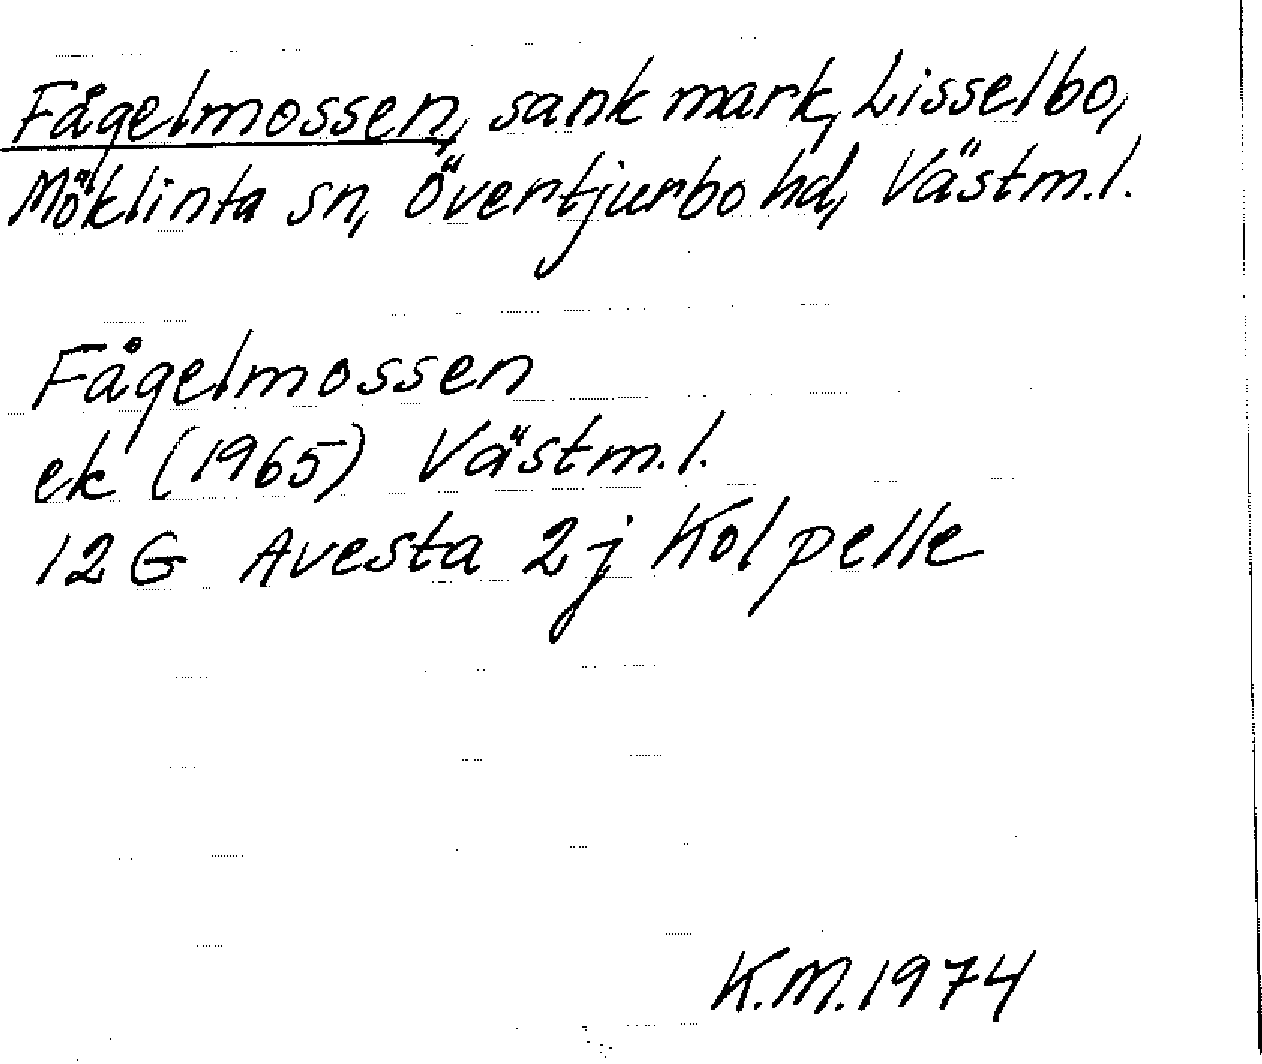 Fågelmossen, sank mark, Lisselbo,
Möklinta sn, Övertjurbo hd, Västm.l.
Fågelmossen
ek (1965) Västm.l.
12G Avesta 2j Kolpelle
K.M.1974